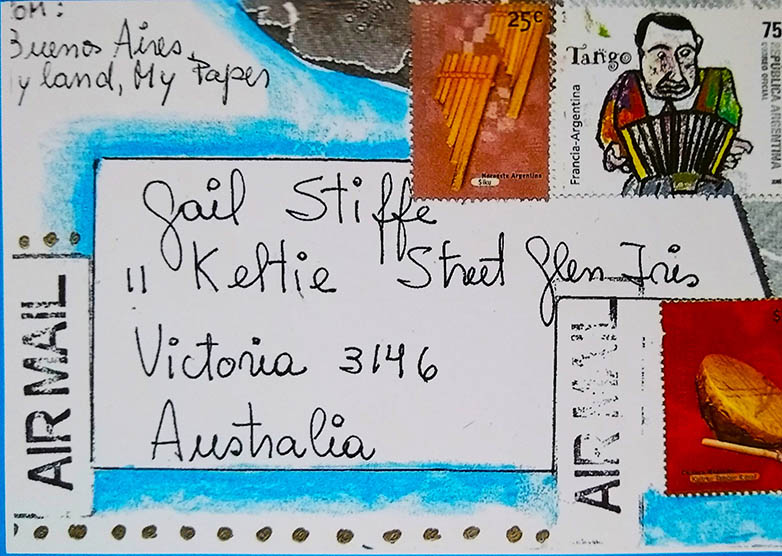 om:
Buenos Aires,
y land, My Paper
25c
Noroeste Argentino
Siku
Tango
75
Francia-Argentina
CORREO OFICIAL
Gail Stiffe
11 Keltie Street Glen Iris
Victoria 3146
Australia
AIR MAIL
AIR MAIL
$